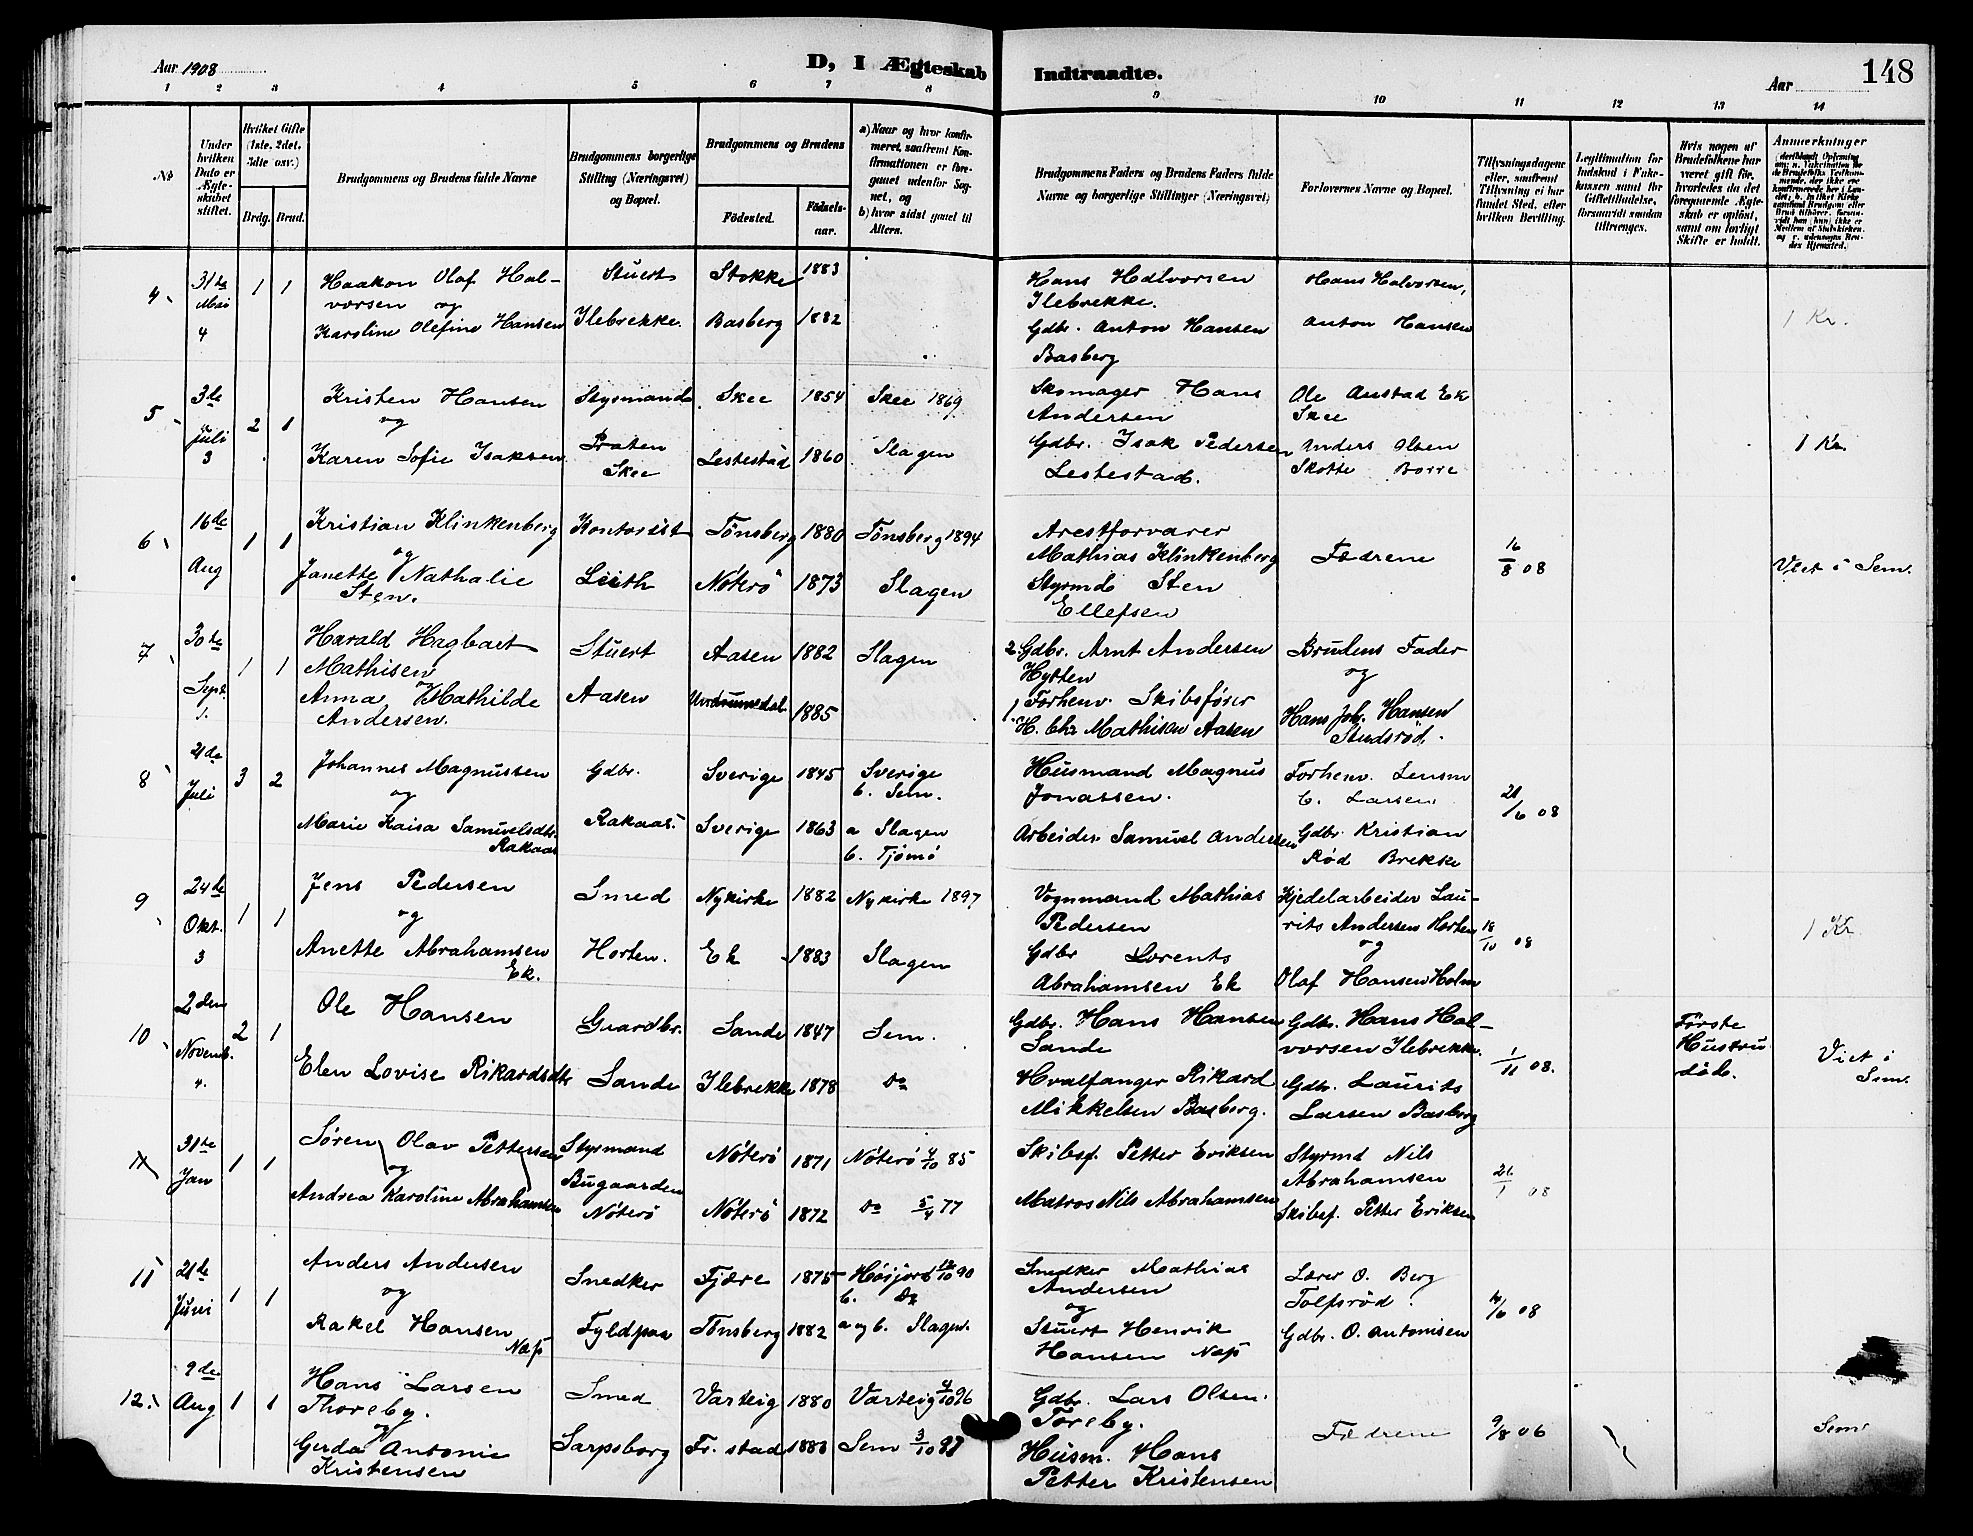 Aar 1908
D, I Ægteskab Indtraadte.
Aar
148
1 2 3 4 5 6 7 8 9 10 11 12 13 14
No
Under hvilken Dato er Ægteskabet stiftet.
Hvilket Gifte (1ste, 2det, 3die osv.)
Brdg. Brud.
Brudgommens og Brudens fulde Navne
Brudgommens borgerlige Stilling (Næringsvei) og Bopæl.
Brudgommens og Brudens
Fødested.
Fødselsaar.
a) Naar og hvor konfirmeret, saafremt Konfirmationen er foregaaet udenfor Sognet, og
b) hvor sidst gaaet til Alters.
Brudgommens Faders og Brudens Faders fulde Navne og borgerlige Stillinger (Næringsvei)
Forlovernes Navne og Bopæl.
Tillysningsdagene eller, saafremt Tillysning ei har fundet Sted, efter hvilken Bevilling.
Legitimation for Indskud i Enkekassen samt for Giftetilladelse, forsaavidt saadan tiltrænges.
Hvis nogen af Brudefolkene har været gift før, hvorledes da det foregaaende Ægteskab er opløst, samt om lovligt Skifte er holdt.
Anmerkninger
4 31te Mai 4 1 1
Haakon Olaf Halvorsen og
Karoline Olefine Hansen
Stuert Ilebrekke.
Stokke 1883
Basberg 1882
Hans Halvorsen
Ilebrekke.
Gdbr. Anton Hansen
Basberg
Hans Halvorsen,
Anton Hansen
1 Kr.
5 3die Juli 3 2 1
Kristen Hansen
og
Karen Sofie Isaksen
Stysmand
Skee
Skee 1854 Skee 1869
Lestestad 1860 Slagen
Skomager Hans
Andersen
Gdbr. Isak Pedersen
Lestestad.
Ole Anstad Ek
Skee
Anders Olsen
Skotte Borre
1 Kr.
6 16de Aug 1 1
Kristian Klinkenberg
og
Janette Nathalie
Sten.
Kontorist
Leith
Tønsberg 1880 Tønsberg 1894
Nøterø 1873 Slagen
Arestforvarer
Mathias Klinkenberg
Styrmd Sten
Ellefsen
Fædrene
16/8 08
Viet i Sem.
7 30te Sept. 1. 1 1
Harald Hagbart
Mathisen
og
Anna Mathilde
Andersen.
Stuert
Aasen
Aasen 1882 Slagen
Undrumsdal 1885
2. Gdbr. Arnt Andersen
Hytten
1. Forhenv. Skibsfører
H. Chr Mathisen Aasen
Brudens Fader
og
Hans Joh. Hansen
Studsrød.
8 21de Juli 3 2
Johannes Magnussen
og
Marie Kaisa Samuelsdtr.
Rakaas
Gdbr.
Rakaas.
Sverige 1845 Sverige
b. Sem.
Sverige 1863 a Slagen
b. Tjømø
Husmand Magnus
Jonassen.
Arbeider Samuel Andersen
Forhenv. Lensm
C. Larsen
Gdbr. Kristian
Rød Brekke
21/6 08
9 24de Okt. 3 1 1
Jens Pedersen
og
Anette Abrahamsen
Ek.
Smed
Horten.
Nykirke 1882 Nykirke 1897
Ek 1883 Slagen
Vognmand Mathias
Pedersen
Gdbr Lorents
Abrahamsen Ek
Kjedelarbeider Laurits Andersen Horten
og
Olaf Hansen Holm
18/10 08
1 Kr
10 2den Novemb. 4. 2 1
Ole Hansen
Elen Lovise Rikardsdtr
Gaardbr.
Sande
Sande 1847 Sem.
Ilebrekke 1878 Do
Gdbr. Hans Hansen
Sande
Hvalfanger Rikard
Mikkelsen Basberg.
Gdbr. Hans Halvorsen Ilebrekke.
Gdbr. Laurits
Larsen Basberg
1/11 08.
Første
Hustru
død.
Viet i
Sem.
11 31te Jan 1 1
Søren Olav Pettersen
og
Andrea Karoline Abrahamsen
Styrmand
Bugaarden
Nøterø
Nøterø 1871 Nøterø 4/10 85
Nøterø 1872 Do 5/4 77
Skibsf. Petter Eriksen
Matros Nils Abrahamsen
Styrmd Nils
Abrahamsen
Skibsf. Petter Eriksen
21/1 08
11 21de Juni 1 1
Anders Andersen
og
Rakel Hansen
Næs
Snedker
Fyldpaa
Fjære 1875 Høijord 12/10 90
b. Do
Tønsberg 1882 a og b. Slagen.
Snedker Mathias
Andersen
og
Stuert Henrik
Hansen Næs
Lærer O. Berg
Tolfsrød.
Gdbr. O. Antonisen
/6 08
12. 9de Aug 1 1
Hans Larsen
Thoreby.
og
Gerda Antonie
Kristensen
Smed
Sarpsborg
Varteig 1880 Varteig 4/10 96
Fr. stad 1883 Sem 3/10 97
Gdbr. Lars Olsen.
Toreby.
Husm. Hans
Petter Kristensen
Fædrene
9/8 06
Sem